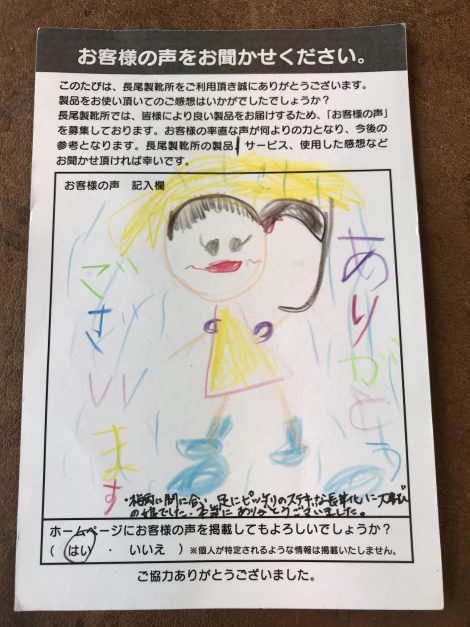 お客様の声をお聞かせください。
このたびは、長尾製靴所をご利用頂き誠にありがとうございます。
製品をお使い頂いてのご感想はいかがでしたでしょうか？
長尾製靴所では、皆様により良い製品をお届けするため、「お客様の声」
を募集しております。お客様の率直な声が何よりの力となり、今後の
参考となります。長尾製靴所の製品、サービス、使用した感想など
お聞かせ頂ければ幸いです。
お客様の声 記入欄
ありがとう
ございます
・梅雨に間に合い 足にピッタリのステキな長靴に大喜び
の娘でした・本当にありがとうございました。
ホームページにお客様の声を掲載してもよろしいでしょうか？
( はい ・ いいえ ) ※個人が特定されるような情報は掲載いたしません。
ご協力ありがとうございました。